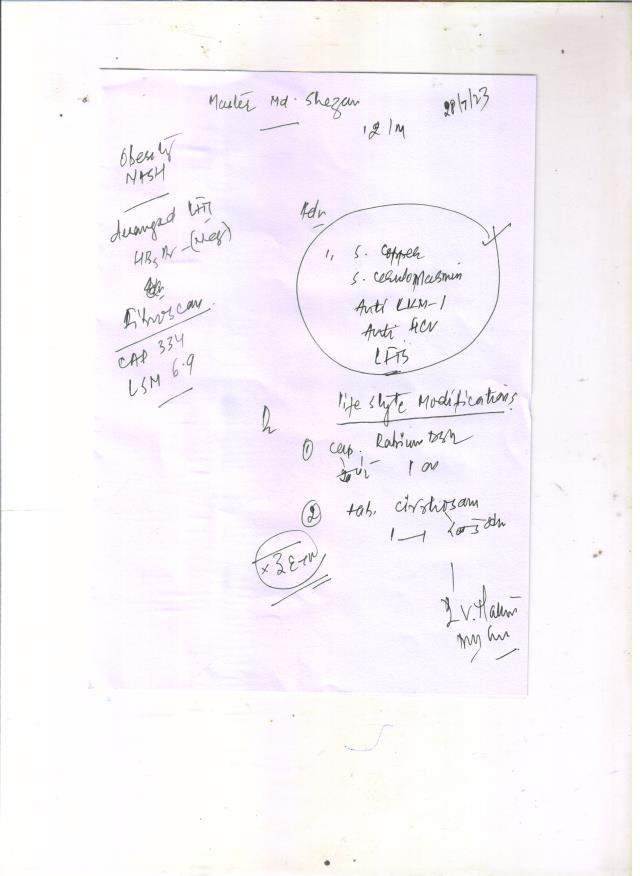 Master Md. Shezan
28/7/23
12/M
Obesity
NASH
deranged LFT
HBsAg - (Neg)
Fibroscan
CAP 334
LSM 6.9
Adv
1, S. Copper
S. Ceruloplasmin
Anti LKM-1
Anti HCV
LFTS
life style Modifications
① Cap. Rabium DSR
1 OD
② tab. Cirrhosam
1 — 1